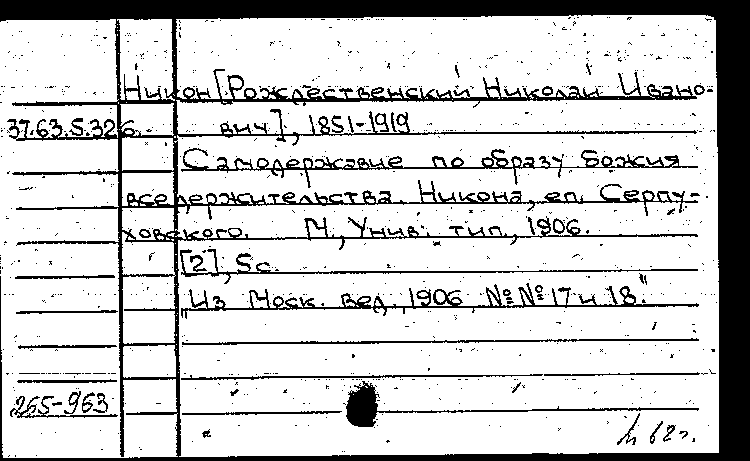 Никон [Рождественский, Николай Ивано-
37.63.5.326. вич], 1851-1919
Самодержавие по образу Божия
вседержительства. Никона, еп. Серпу-
ховского. М., Унив. тип., 1906.
[2], 5 с.
"Из Моск. вед., 1906, №№ 17 и 18."
265-963
62 г.